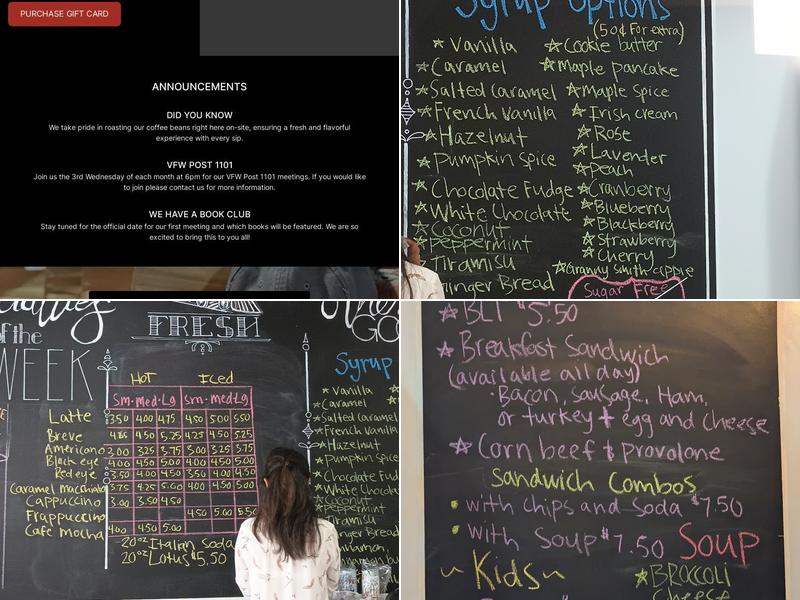 PURCHASE GIFT CARD
ANNOUNCEMENTS
DID YOU KNOW
We take pride in roasting our coffee beans right here on-site, ensuring a fresh and flavorful
experience with every sip.
VFW POST 1101
Join us the 3rd Wednesday of each month at 6pm for our VFW Post 1101 meetings. If you would like
to join please contact us for more information.
WE HAVE A BOOK CLUB
Stay tuned for the official date for our first meeting and which books will be featured. We are so
excited to bring this to you all!
Syrup Options
(50¢ For extra)
Vanilla
Caramel
Salted Caramel
French Vanilla
Hazelnut
Pumpkin Spice
Chocolate Fudge
White Chocolate
Coconut
Peppermint
Tiramisu
Ginger Bread
Cookie butter
Maple pancake
Maple Spice
Irish cream
Rose
Lavender
Peach
Cranberry
Blueberry
Blackberry
Strawberry
Cherry
Granny Smith apple
Sugar Free
of the
WEEK
FRESH
GO
Hot Iced
Sm. Med. Lg Sm. Med. Lg
Latte 3.50 4.00 4.75 4.50 5.00 5.50
Breve 4.50 5.25 4.25 4.50 5.25
Americano 3.00 3.25 3.75 3.00 3.25 3.75
Black eye 4.00 4.50 5.00 4.00 4.50 5.00
Red eye 3.50 4.00 4.50 3.50 4.00 4.50
Caramel Macchiato 3.75 4.25 5.00 4.00 4.50 5.00
Cappuccino 3.00 3.50 4.50
Frappuccino 4.50 5.00 5.50
Cafe Mocha 4.00 4.50 5.00
20oz Italian Soda
20oz Lotus $5.50
Syrup
Vanilla
Caramel
Salted Caramel
French Vanilla
Hazelnut
Pumpkin Spice
Chocolate Fud
White Chocola
Coconut
Peppermint
Tiramisu
inger Bread
BLT $5.50
Breakfast Sandwich
(available all day)
· Bacon, Sausage, Ham,
or turkey + egg and cheese
Corn beef & provolone
Sandwich Combos
• with chips and Soda $7.50
• with Soup $7.50
Soup
~ Kids ~
BROCCOLI
Cheese